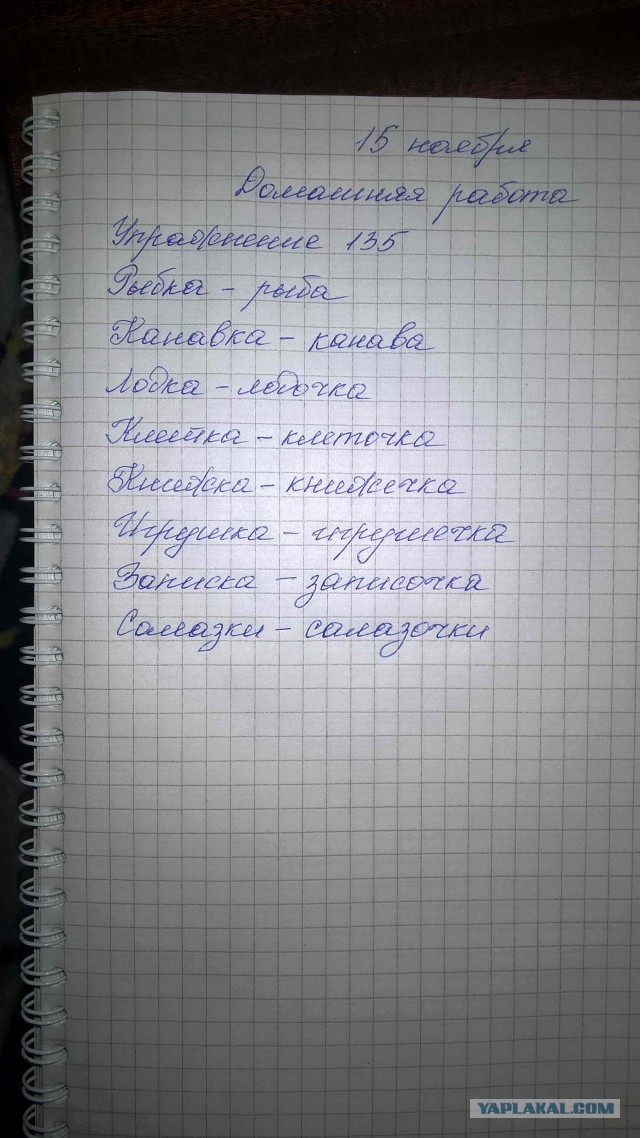 15 ноября
Домашняя работа
Упражнение 135
Рыбка - рыба
Канавка - канава
Лодка - лодочка
Клетка - клеточка
Книжка - книжечка
Игрушка - игрушечка
Записка - записочка
Салазки - салазочки
YAPLAKAL.COM